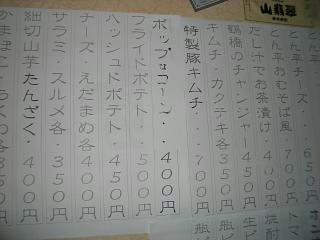 山翡翠
とん平チーズ・・650円
とん平おむそば風・700円
だし汁でお茶漬け・400円
鶴橋のチャンジャ・450円
キムチ・カクテキ各350円
特製豚キムチ・・700円
ポップコーン・・400円
フライドポテト・500円
ハッシュドポテト・450円
チーズ・えだまめ各400円
サラミ・スルメ各・350円
細切山芋たんざく・400円